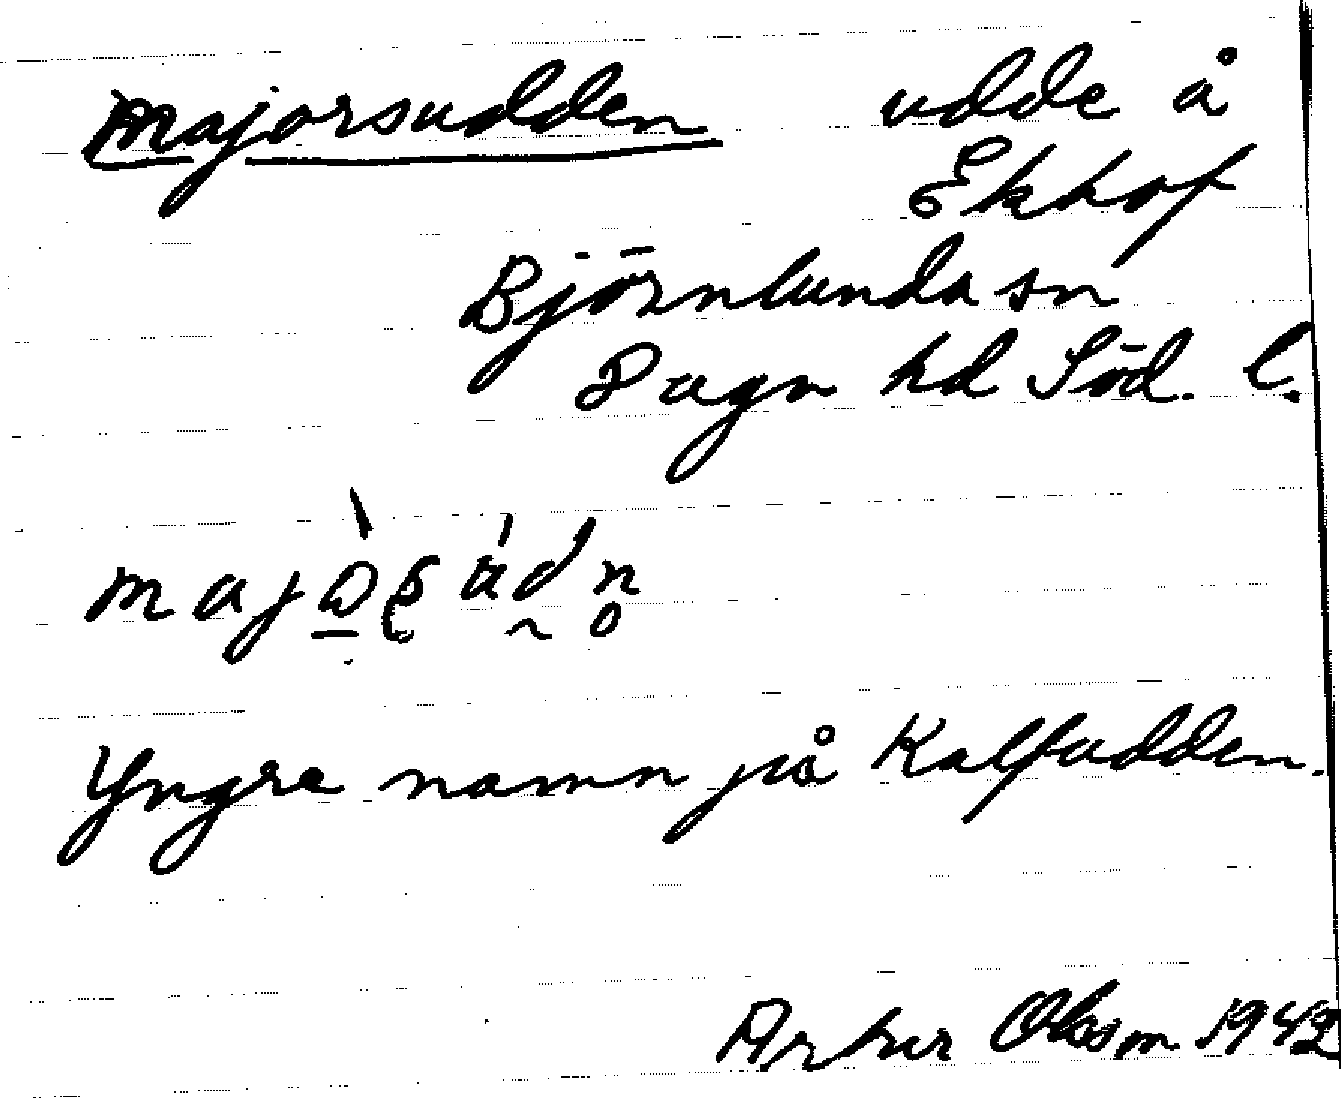 Majorsudden udde å
Ekhof
Björnlunda sn
Daga hd Söd. l.
Yngre namn på Kalfudden.
Artur Olsson 1942